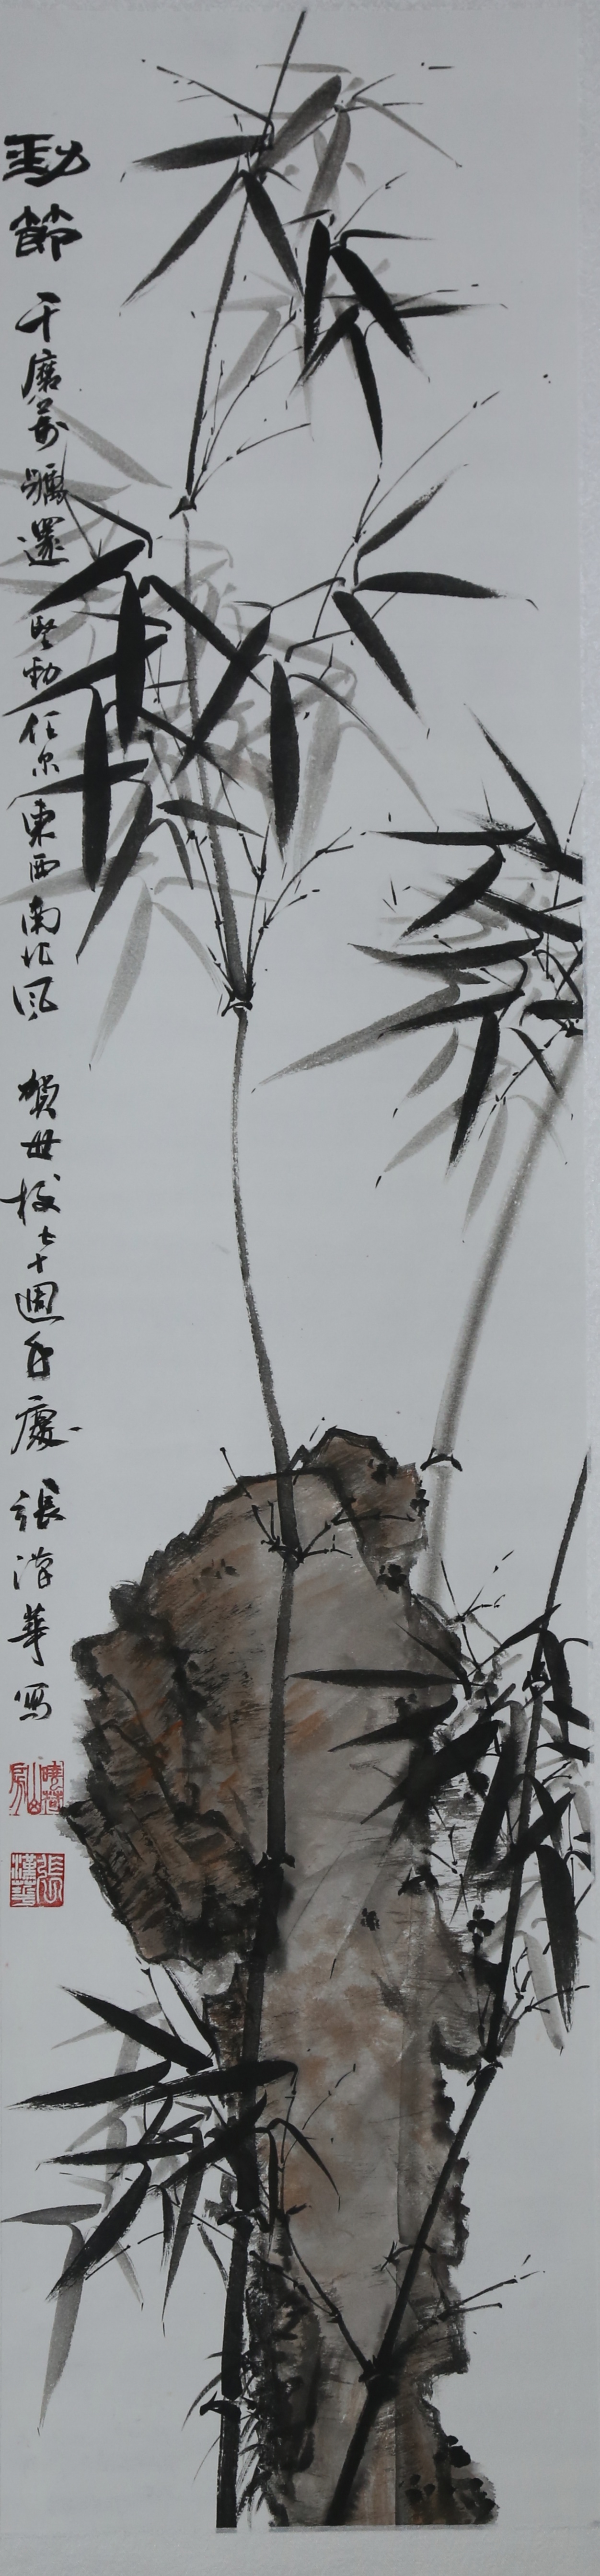 勁節
千磨萬礪還堅勁任尔東西南北風
賀母校七十週年慶
張漢華寫
張漢華